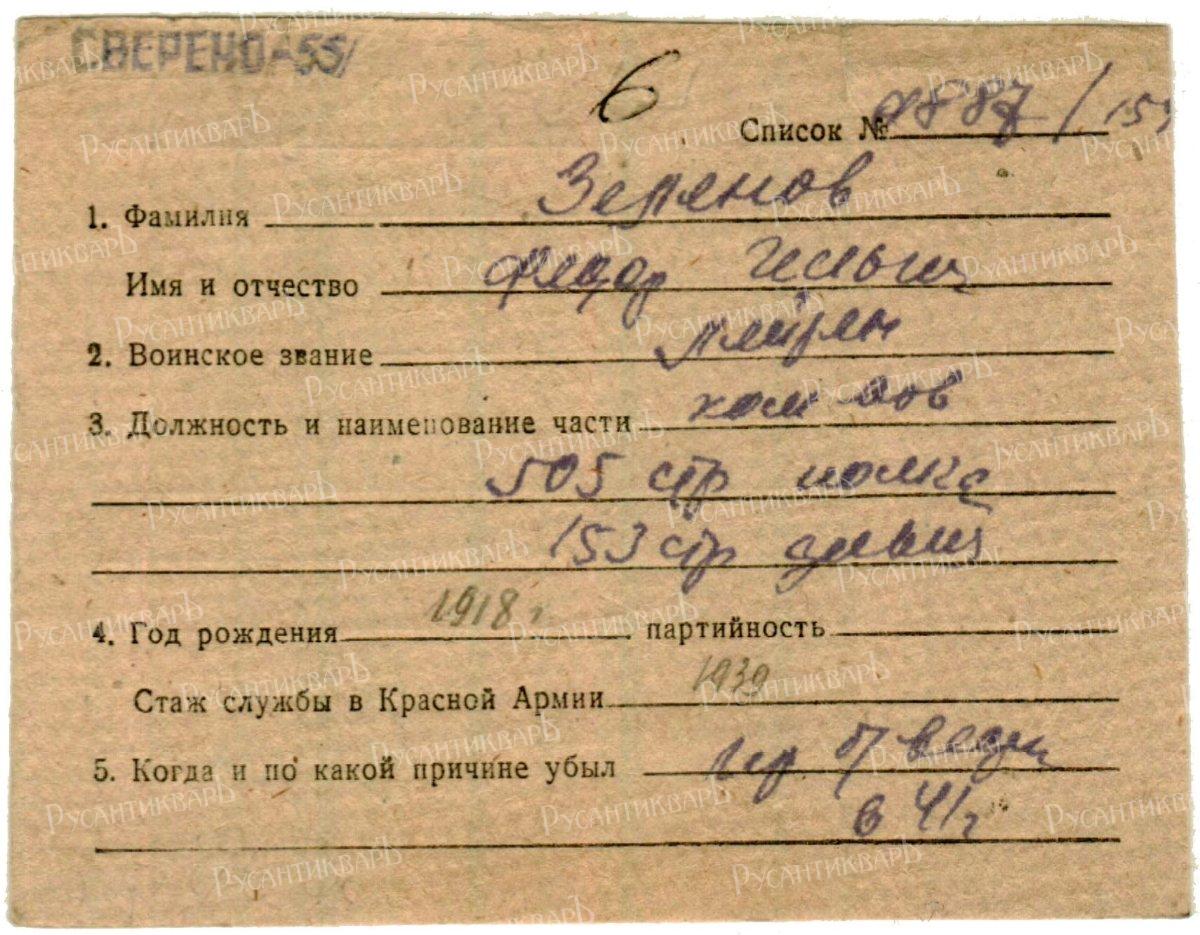 СВЕРЕНО-55/
6
Список № 887/
1. Фамилия
Имя и отчество Федор Ильич
2. Воинское звание Лейтен
3. Должность и наименование части ком
505 стр полка
153 стр
4. Год рождения 1918 г партийность
Стаж службы в Красной Армии 1939
5. Когда и по какой причине убыл
в 41г
РусантикварЪ